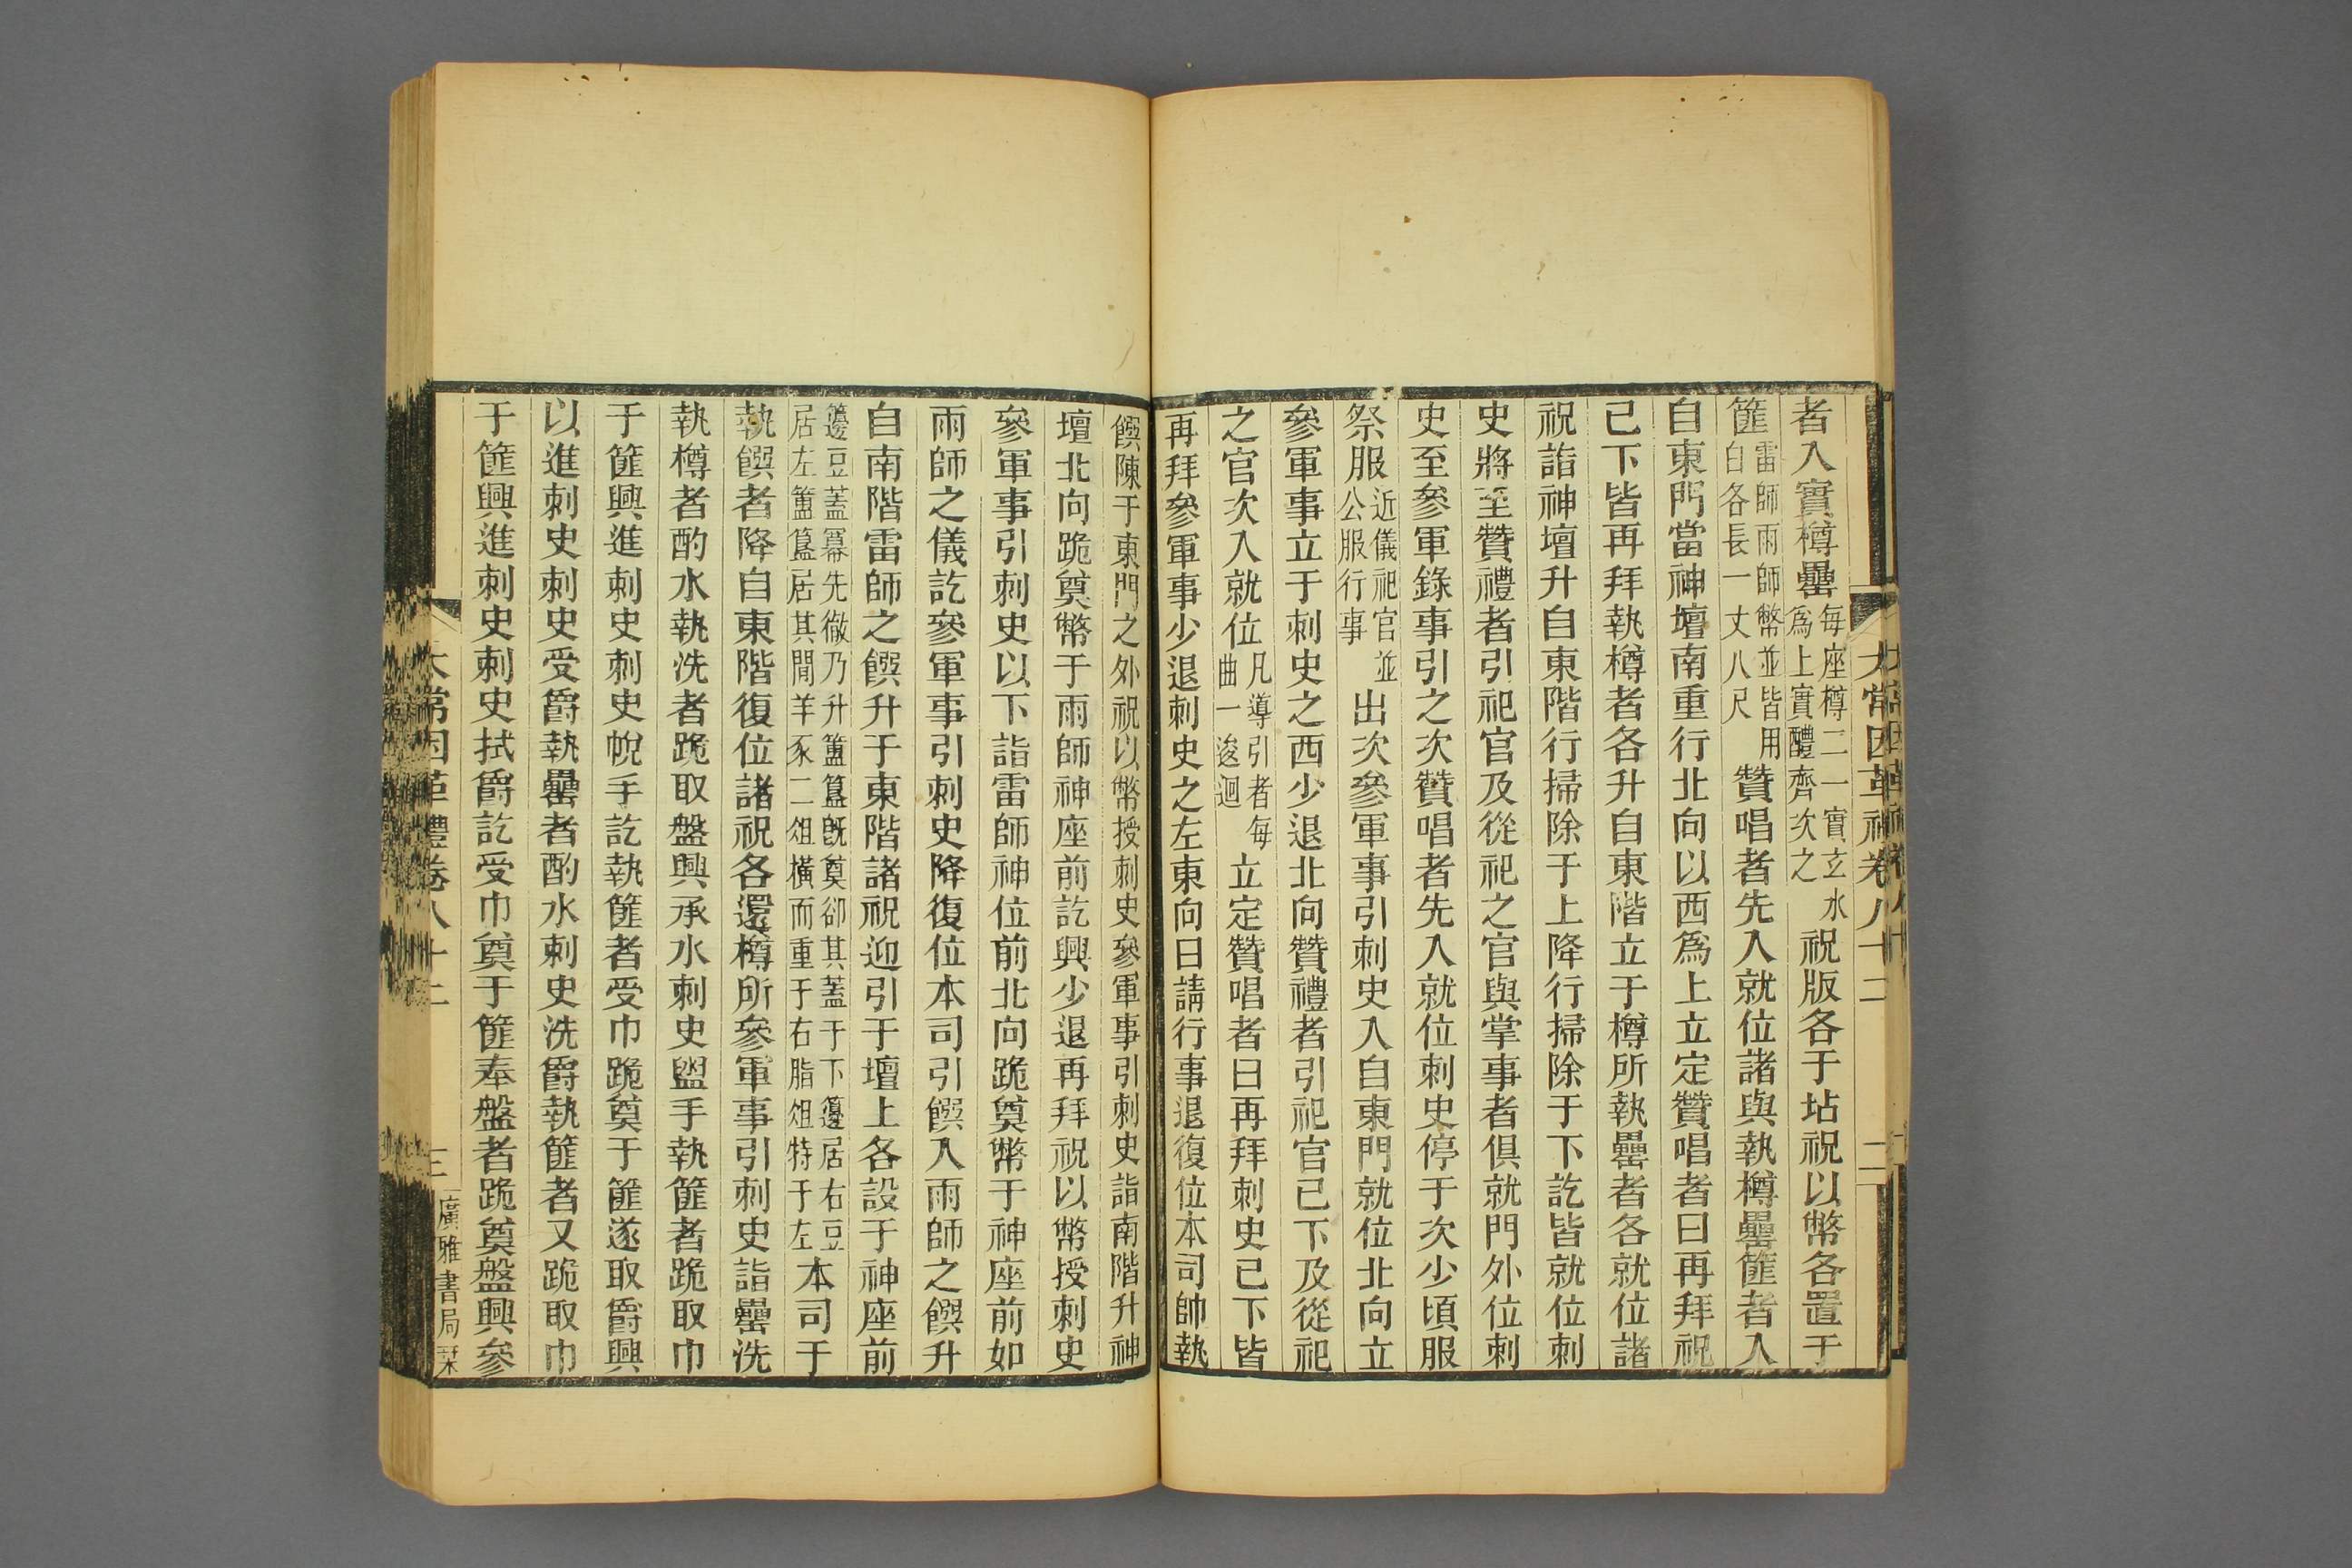 太常因革禮卷八十二 二
者入實樽罍每座樽二一實玄水爲上實醴齊次之祝版各于坫祝以幣各置于
篚雷師雨師幣並皆用白各長一丈八尺贊唱者先入就位諸與執樽罍篚者入
自東門當神壇南重行北向以西爲上立定贊唱者曰再拜祝
已下皆再拜執樽者各升自東階立于樽所執罍者各就位諸
祝詣神壇升自東階行掃除于上降行掃除于下訖皆就位刺
史將至贊禮者引祀官及從祀之官與掌事者俱就門外位刺
史至參軍錄事引之次贊唱者先入就位刺史停于次少頃服
祭服近儀祀官並公服行事出次參軍事引刺史入自東門就位北向立
參軍事立于刺史之西少退北向贊禮者引祀官已下及從祀
之官次入就位凡導引者每曲一逡迴立定贊唱者曰再拜刺史已下皆
再拜參軍事少退刺史之左東向曰請行事退復位本司帥執
饌陳于東門之外祝以幣授刺史參軍事引刺史詣南階升神
壇北向跪奠幣于雨師神座前訖興少退再拜祝以幣授刺史
參軍事引刺史以下詣雷師神位前北向跪奠幣于神座前如
雨師之儀訖參軍事引刺史降復位本司引饌入雨師之饌升
自南階雷師之饌升于東階諸祝迎引于壇上各設于神座前
籩豆蓋冪先徹乃升簠簋既奠卻其蓋于下籩居右豆居左簠簋居其閒羊豕二俎橫而重于右腊俎特于左本司于
執饌者降自東階復位諸祝各還樽所參軍事引刺史詣罍洗
執樽者酌水執洗者跪取盤興承水刺史盥手執篚者跪取巾
于篚興進刺史刺史帨手訖執篚者受巾跪奠于篚遂取爵興
以進刺史刺史受爵執罍者酌水刺史洗爵執篚者又跪取巾
于篚興進刺史刺史拭爵訖受巾奠于篚奉盤者跪奠盤興參
太常因革禮卷八十二 三 廣雅書局栞